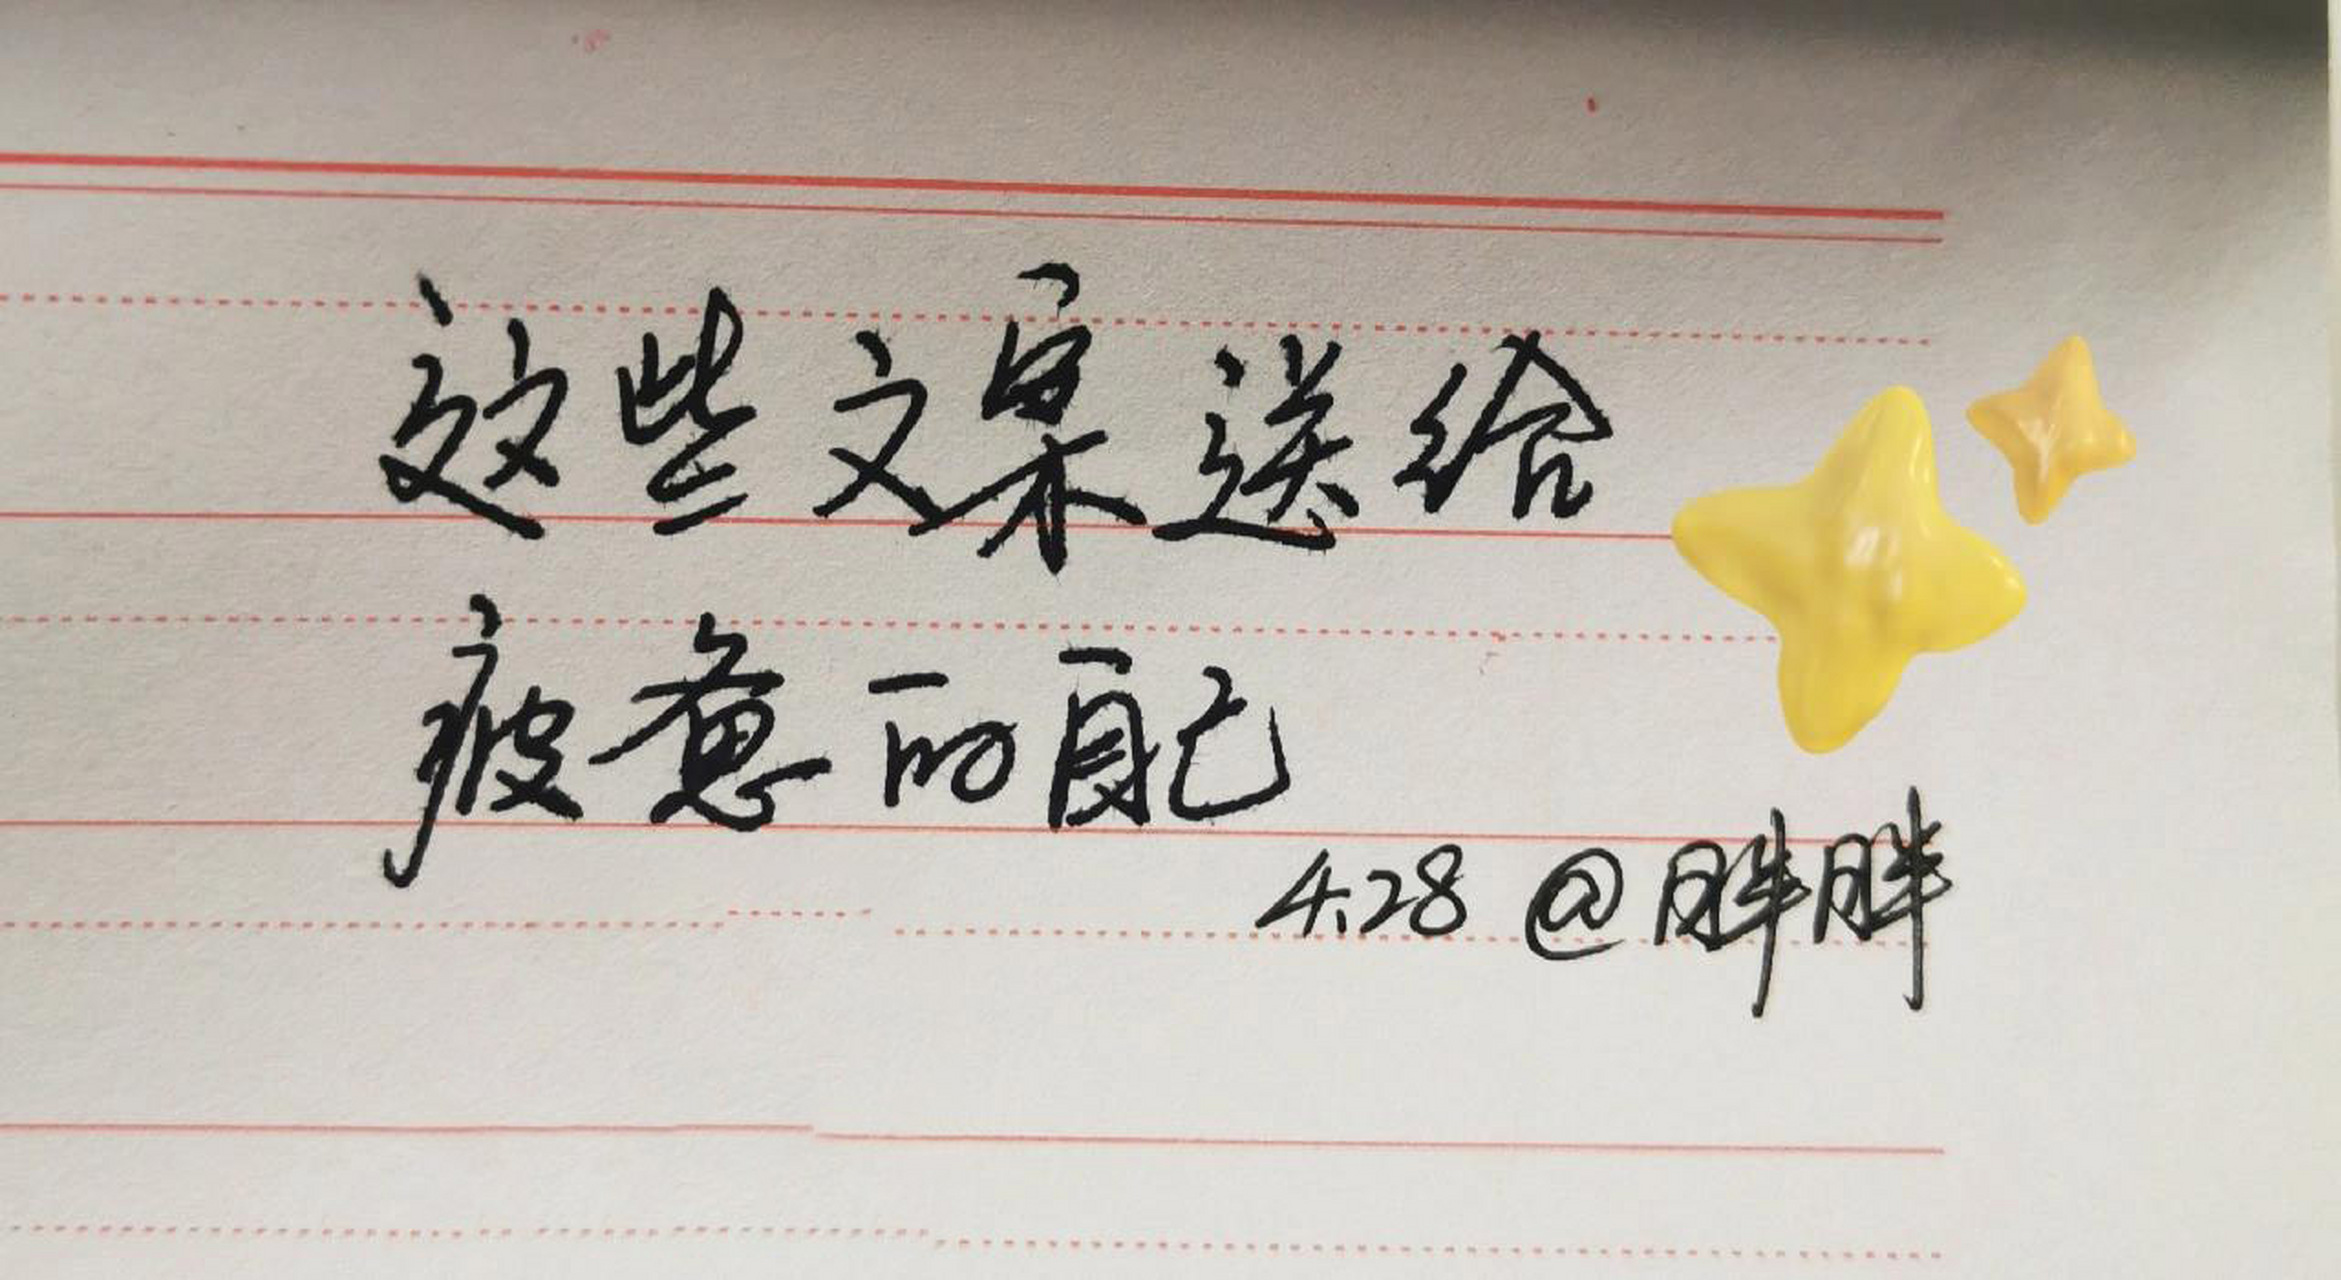 这些文案送给
疲惫的自己
4.28 @胖胖